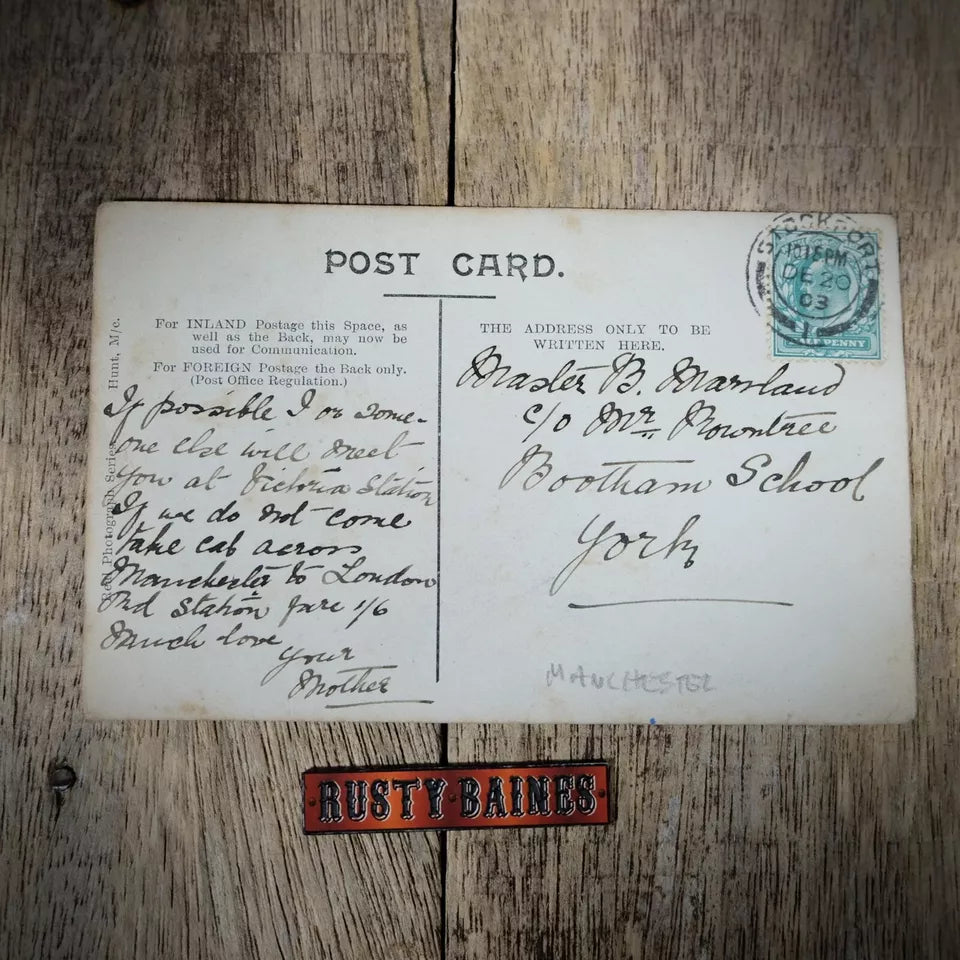 POST CARD.
For INLAND Postage this Space, as
well as the Back, may now be
used for Communication.
For FOREIGN Postage the Back only.
(Post Office Regulation.)
Real Photograph Series, Hunt, M/c.
If possible I or some-
one else will meet
you at Victoria Station
If we do not come
take cab across
Manchester to London
Rd Station fare 1/6
Much love
Your
Mother
THE ADDRESS ONLY TO BE
WRITTEN HERE.
Master B. Marsland
c/o Mr. Rowntree
Bootham School
York
STOCKPORT
1015PM
DE 20
03
1
HALFPENNY
MANCHESTER
RUSTY·BAINES